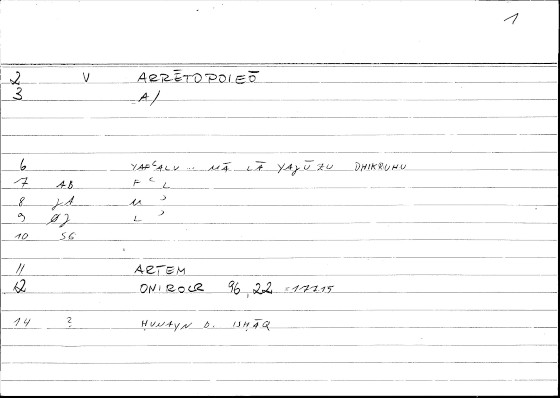 1
2 V ARRĒTOPOIEŌ
3 A/
6 YAFʿALU .. MĀ LĀ YAJŪZU DHIKRUHU
7 AB F ʿ L
8 JA M ʾ
9 ØJ L ʾ
10 SG
11 ARTEM
12 ONIROCR 96,22 = 177,15
14 ? ḤUNAYN B. ISḤĀQ